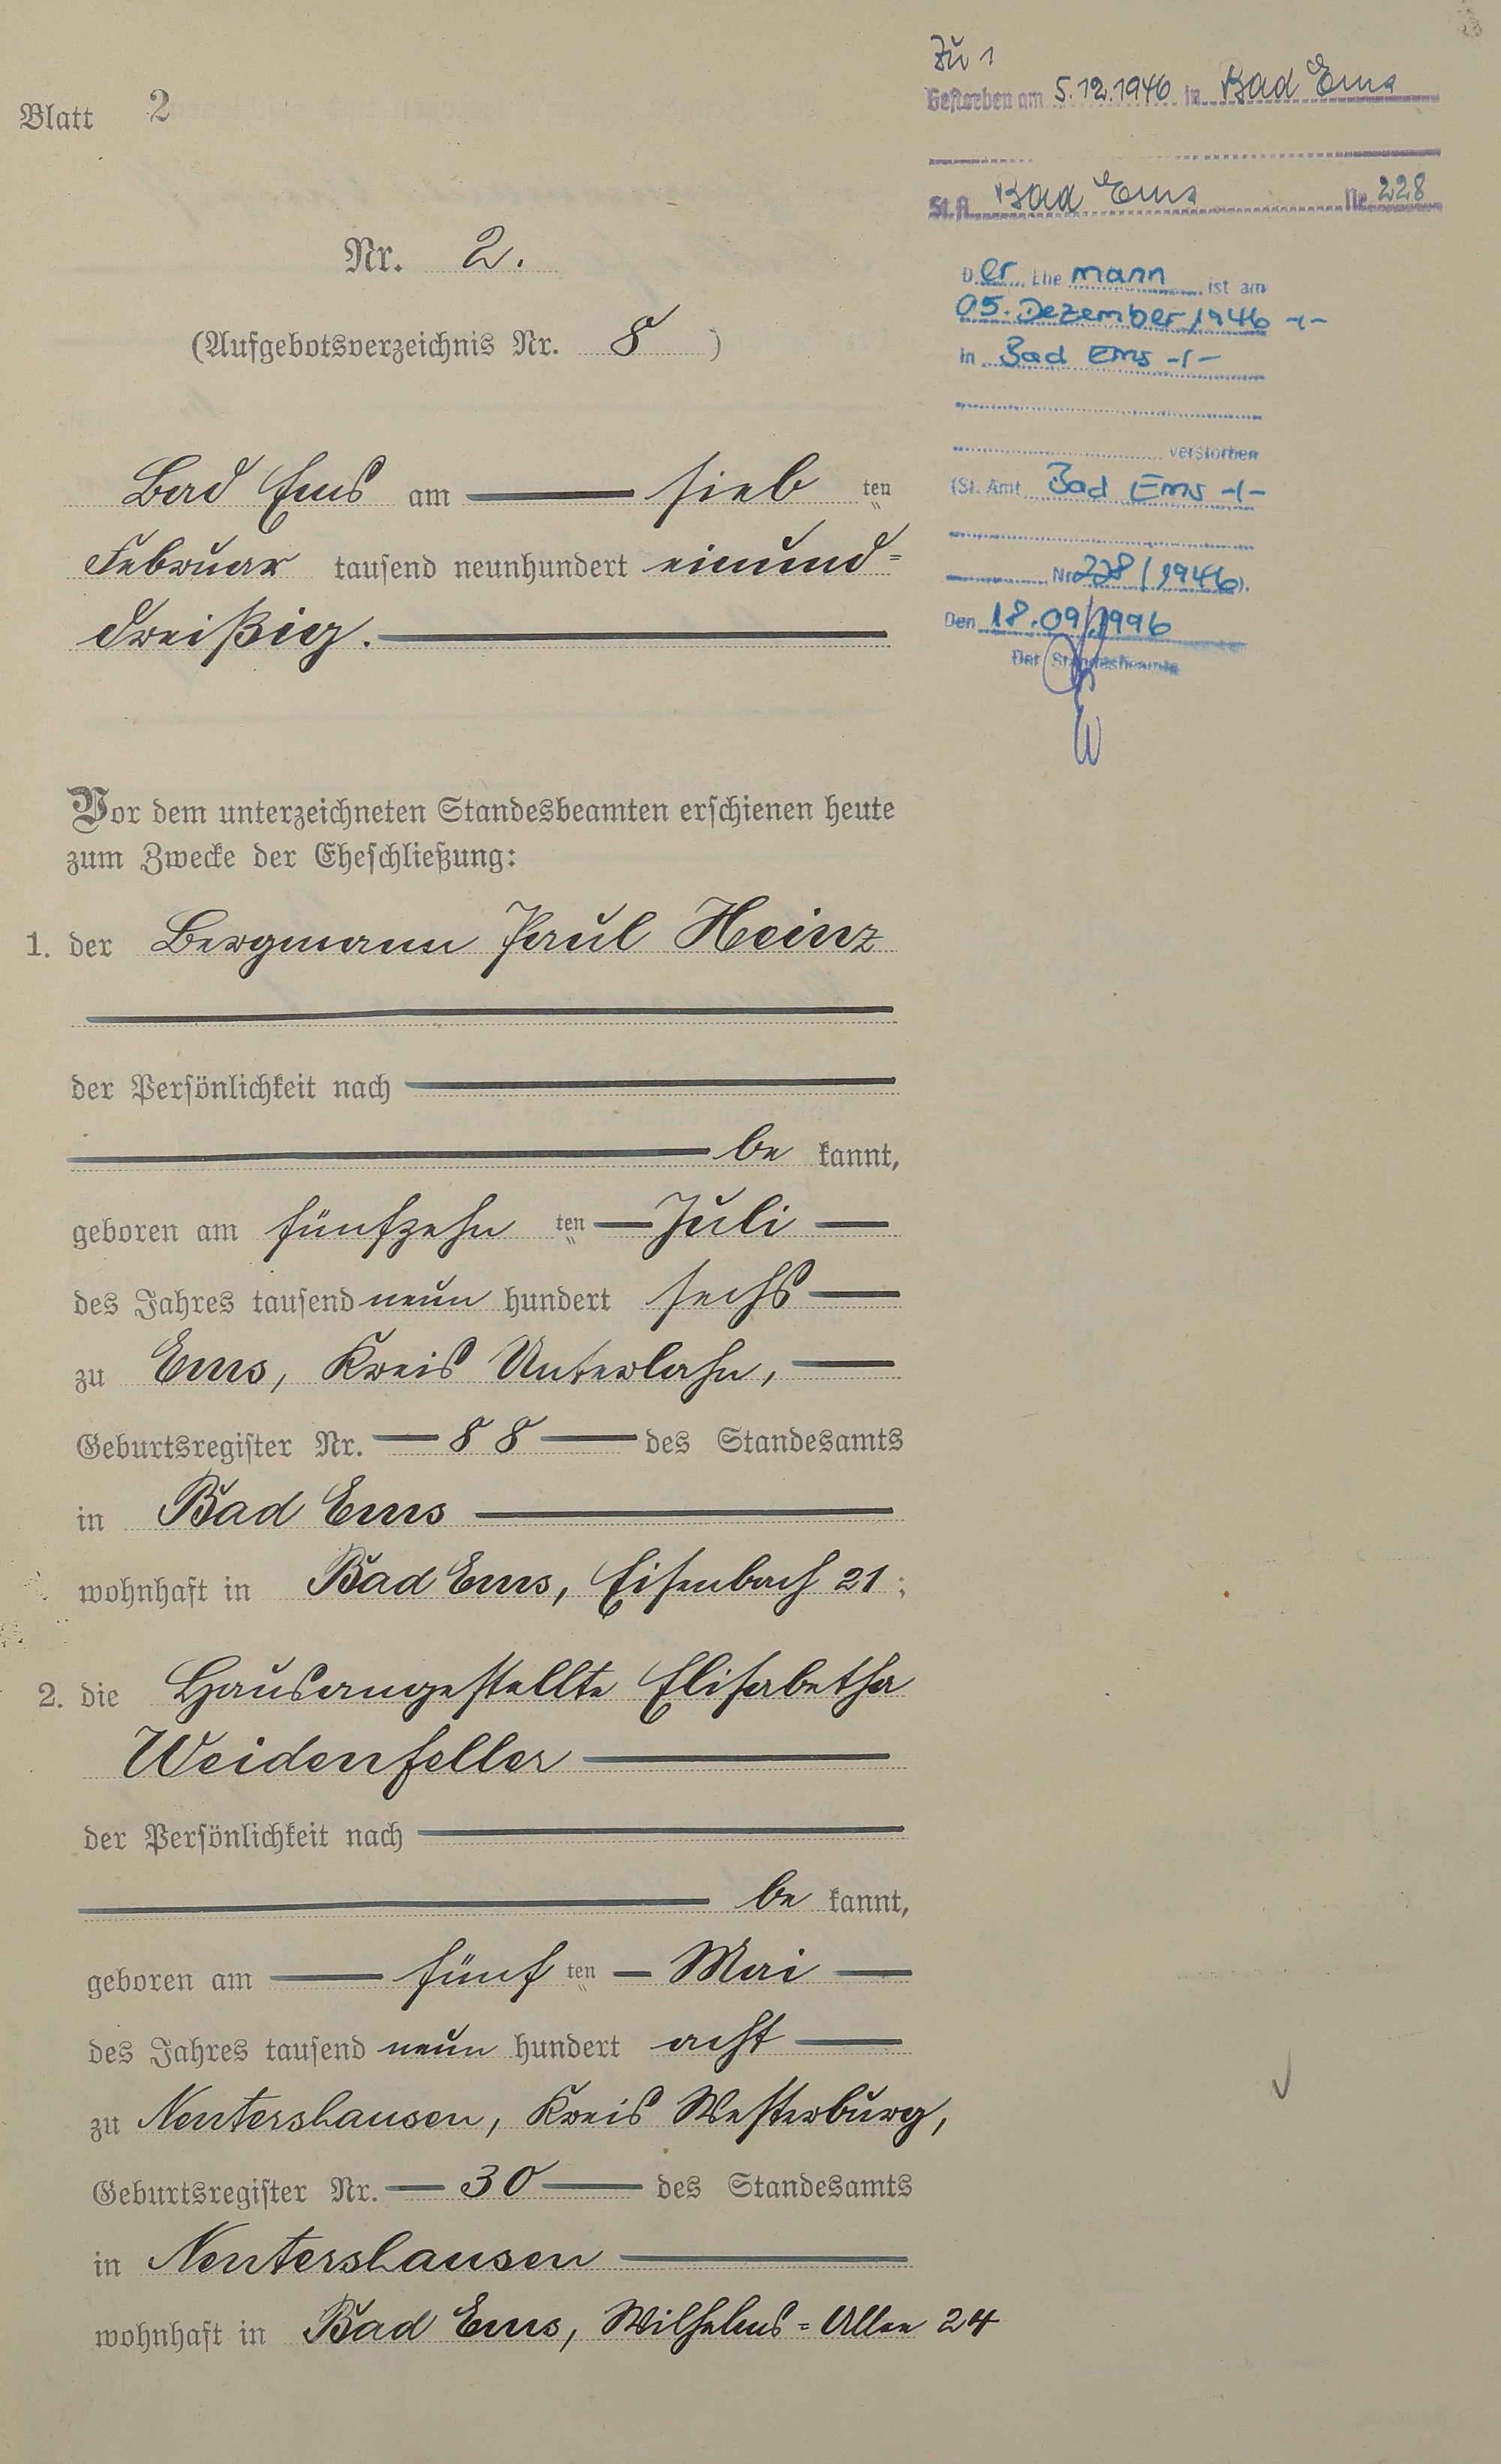 Blatt 2
Nr. 2.
(Aufgebotsverzeichnis Nr. 8)
Bad Ems am — sieb ten
Februar tausend neunhundert einund-
dreißig. —
Vor dem unterzeichneten Standesbeamten erschienen heute
zum Zwecke der Eheschließung:
1. der Bergmann Paul Heinz
der Persönlichkeit nach —
— be kannt,
geboren am fünfzehn ten — Juli —
des Jahres tausend neun hundert sechs —
zu Ems, Kreis Unterlahn, —
Geburtsregister Nr. — 88 — des Standesamts
in Bad Ems —
wohnhaft in Bad Ems, Eisenbach 21;
2. die Hausangestellte Elisabetha
Weidenfeller —
der Persönlichkeit nach —
— be kannt,
geboren am — fünf ten — Mai —
des Jahres tausend neun hundert acht —
zu Nentershausen, Kreis Westerburg,
Geburtsregister Nr. — 30 — des Standesamts
in Nentershausen —
wohnhaft in Bad Ems, Wilhelms-Allee 24
Zu 1
Gestorben am 5.12.1946 in Bad Ems
St.A. Bad Ems Nr. 228
Der Ehemann ist am
05. Dezember 1946 -/-
in Bad Ems -/-
verstorben
(St. Amt Bad Ems -/-
Nr. 228/1946).
Den 18.09.1996
Der Standesbeamte